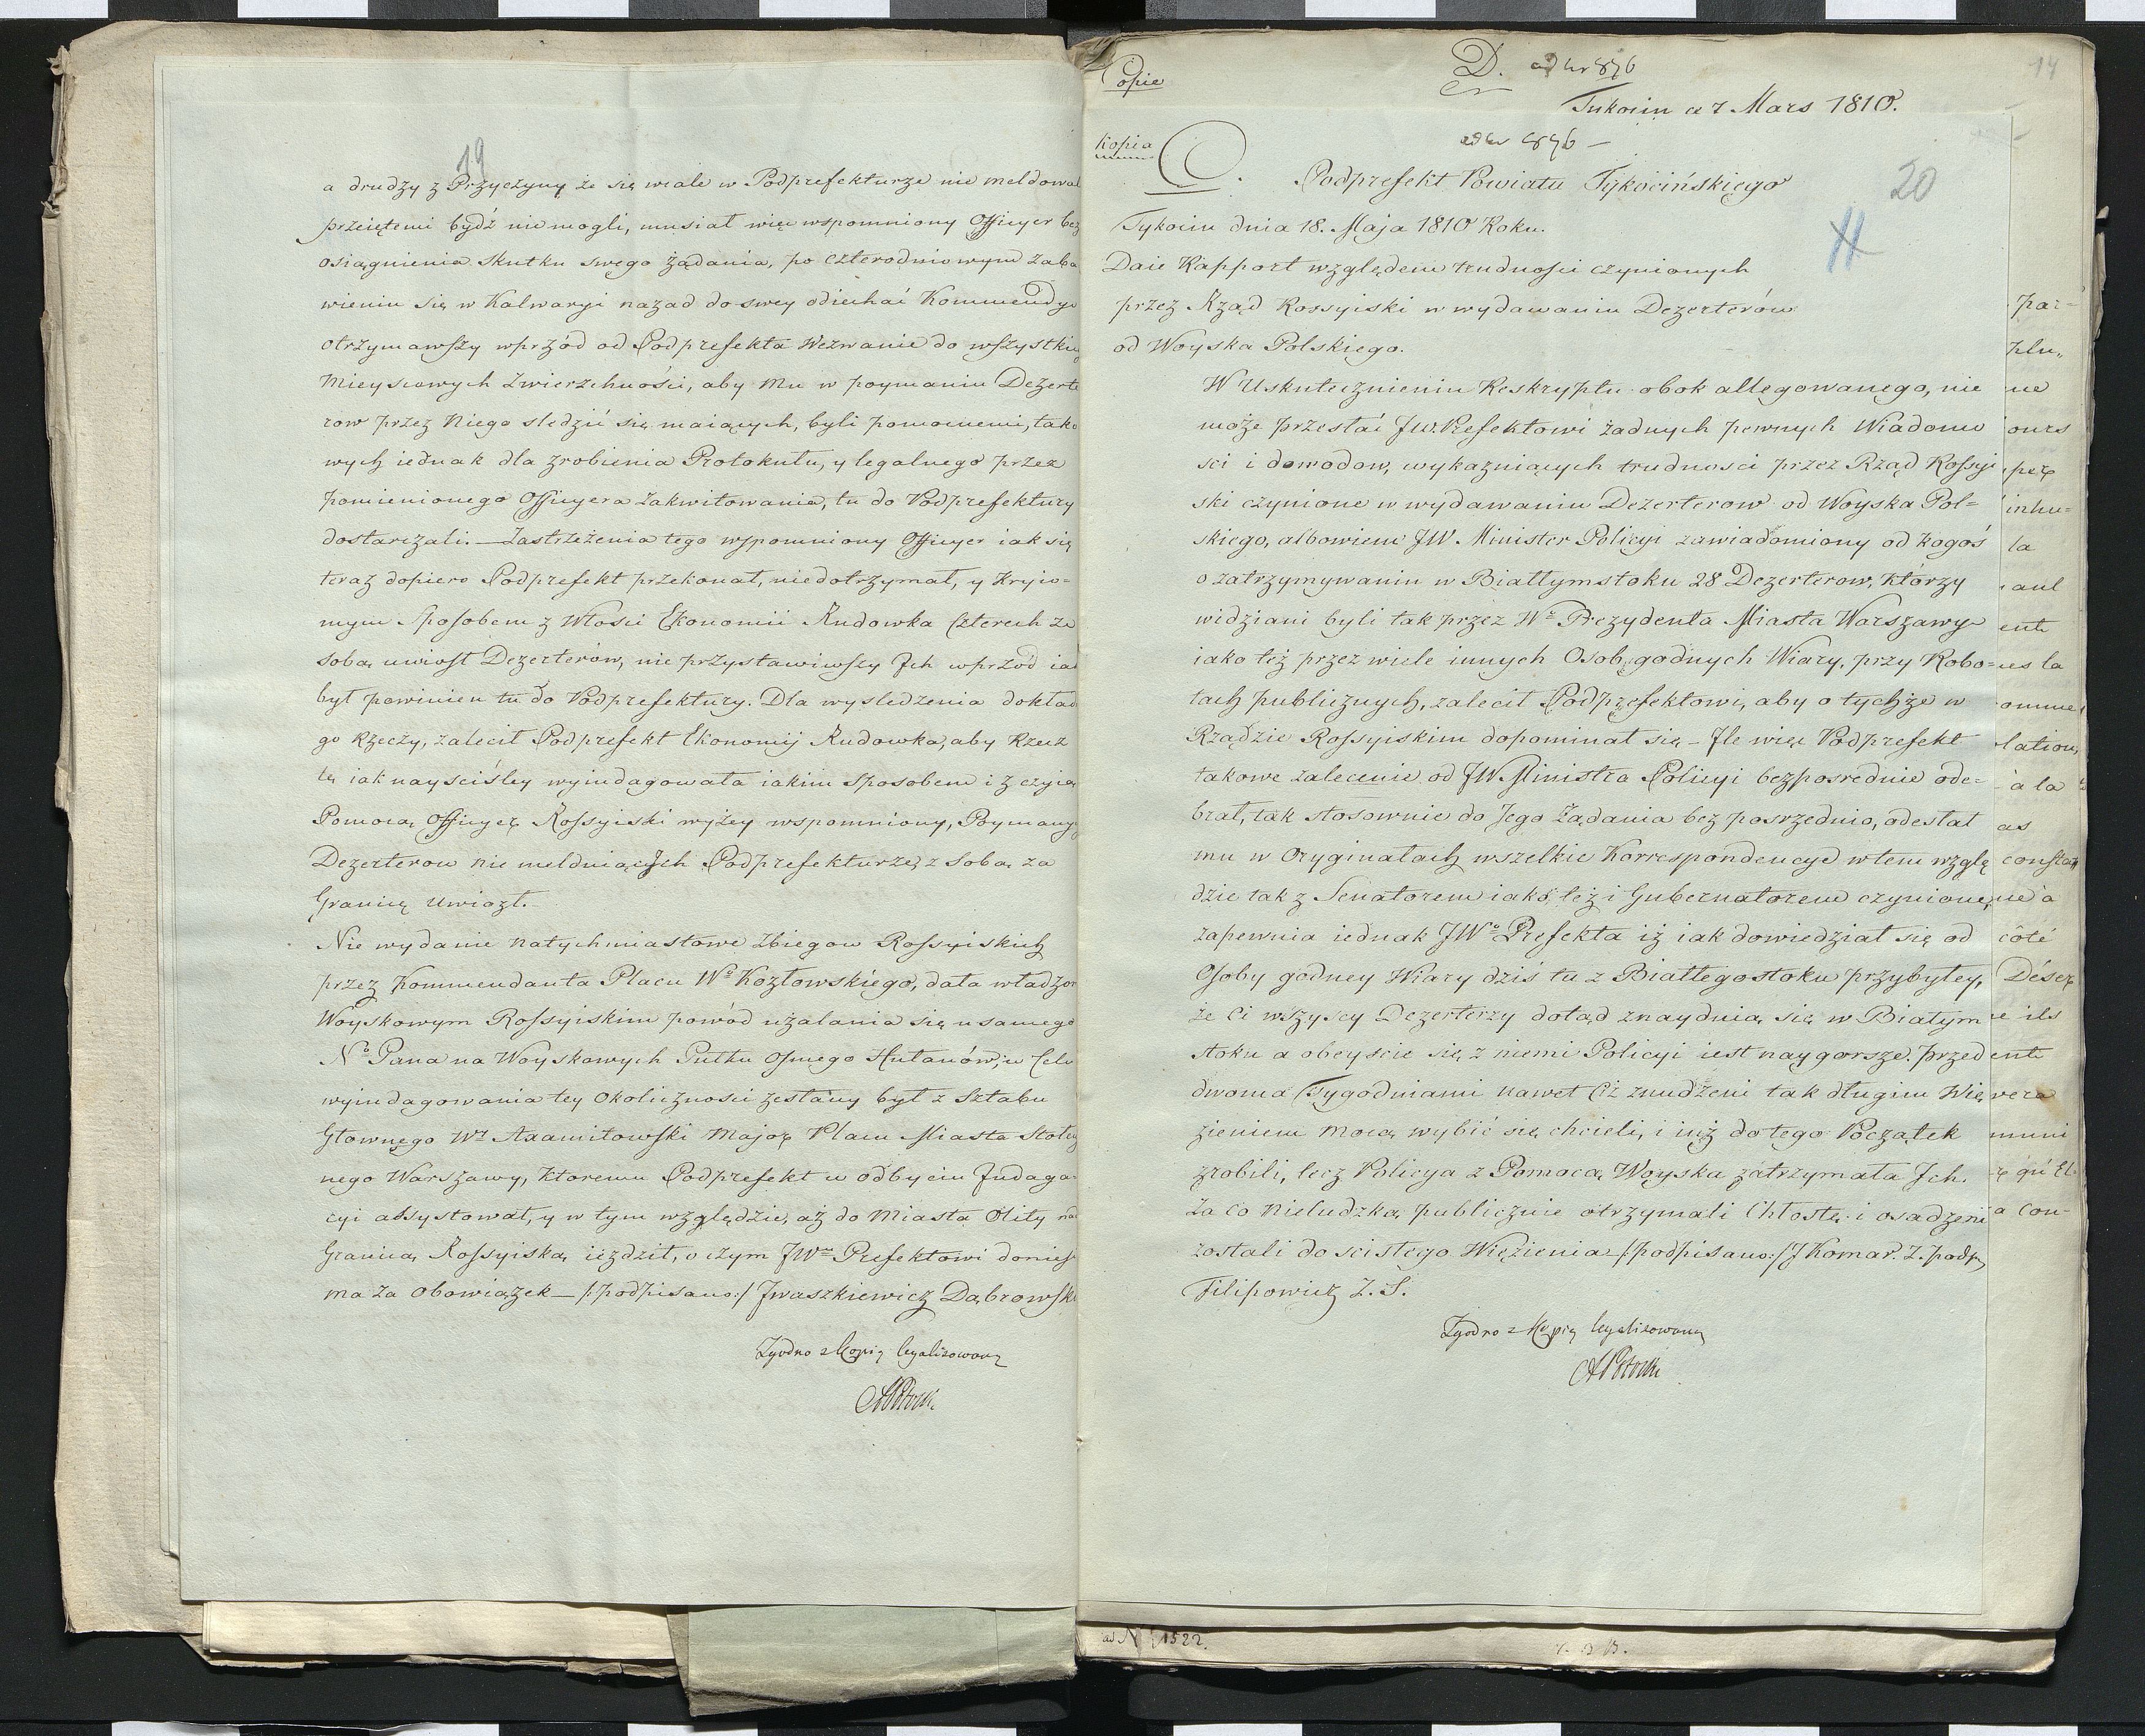 19
a drudzy z Przyczyny że się wcale w Podprefekturze nie meldowal
przeiętemi bydź nie mogli, musiał więc wspomniony Officyer bez
osiągnienia skutku swego żądania, po czterodniowym zaba
wieniu się w Kalwaryi nazad do swey odiechać Kommendy
otrzymawszy wprzód od Podprefekta Wezwanie do wszystkich
Mieyscowych Zwierzchności, aby Mu w poymaniu Dezerte
row przez Niego sledzić się maiących, byli pomocnemi, tako
wych iednak dla zrobienia Protokułu, y legalnego przez
pomienionego Officyera zakwitowania, tu do Podprefektury
dostarczali. — Zastrzeżenia tego wspomniony Officyer iak się
teraz dopiero Podprefekt przekonał, niedotrzymał, y kryio-
mym sposobem z Włości Ekonomii Rudowka Czterech za
sobą uwiosł Dezerterów, nie przystawiwszy Ich wprzód iak
był powinien tu do Podprefektury. Dla wysledzenia dokład
go Rzeczy, zalecił Podprefekt Ekonomij Rudowka, aby Rzecz
tę iak nayściśley wyindagowała iakim sposobem i z czyią
Pomocą Officyer Rossyiski wyżey wspomniony, Poymany
Dezerterow nie melduiąc Ich Podprefekturze, z sobą za
Granicę uwiozł. —
Nie wydanie natychmiastowe zbiegow Rossyiskich
przez Kommendanta Placu Wo Kozłowskiego, dała władzom
Woyskowym Rossyiskim powód użalania się u samego
No Pana na Woyskowych Pułku osmego Hułanów, w Celu
wyindagowania tey okoliczności zesłany był z Sztabu
Głownego Wy Axamitowski Major Placu Miasta Stołecz
nego Warszawy, ktoremu Podprefekt w odbyciu Indaga-
cyi assystował, y w tym względzie, aż do Miasta Olity na
Granicą Rossyiską ieździł, o czym JWmu Prefektowi donieść
ma za obowiązek — /:podpisano:/ Iwaszkiewicz Dąbrowski
Zgodno z Kopią legalizowaną
APotocki
Copie
D. ad Nr 876
Tykocin ce 7 Mars 1810.
14
kopia
ad Nr 876 —
C. Podprefekt Powiatu Tykocińskiego
20
Tykocin dnia 18. Maja 1810 Roku.
Daie Rapport względem trudności czynionych
przez Rząd Rossyiski w wydawaniu Dezerterów
od Woyska Polskiego.
W Uskutecznieniu Reskryptu obok allegowanego, nie
może przesłać JW. Prefektowi żadnych pewnych Wiadomo
sci i dowodow, wykazuiących trudnosci przez Rząd Rossyi
ski czynione w wydawaniu Dezerterow od Woyska Pol=
skiego, albowiem JW. Minister Policyi zawiadomiony od kogoś
o zatrzymywaniu w Białłymstoku 28 Dezerterow, którzy
widziani byli tak przez Wo Prezydenta Miasta Warszawy
iako też przez wiele innych Osob godnych Wiary, przy Robo=
tach publicznych, zalecił Podprefektowi, aby o tychże w
Rządzie Rossyiskim dopominał się — Ile więc Podprefekt
takowe zalecenie od JW Ministra Policyi bezposrednie ode-
brał, tak stosownie do Jego Żądania bez posrzednio, odesłał
mu w Oryginałach wszelkie Korrespondencye w tem wzglę
dzie tak z Senatorem iako też i Gubernatorem czynione,
zapewnia iednak JWo Prefekta iż iak dowiedział się od
Osoby godney Wiary dziś tu z Białłegostoku przybyłey,
że Ci wszyscy Dezerterzy dotąd znayduią się w Białym
stoku a obeyscie się z niemi Policyi iest naygorsze. przed
dwoma Tygodniami nawet Ciż znudzeni tak długim Wię
zieniem mocą wybić się chcieli, i iuż do tego Początek
zrobili, lecz Policya z Pomocą Woyska zatrzymała Ich.
Za co nieludzką publicznie otrzymali Chłostę i osadzeni
zostali do scisłego Więzienia — /:podpisano:/ J Komar. Z. podp.
Filipowicz Z. S.
Zgodno z Kopią legalizowaną
APotocki
par=
plu„
ne
ours
per
inhu=
la
ent
us la
omme
lation,
à la
as
constan
né à
côté
Déser
e ils
ente
vera
muni
r qu'El
a con-
ad N 1522.